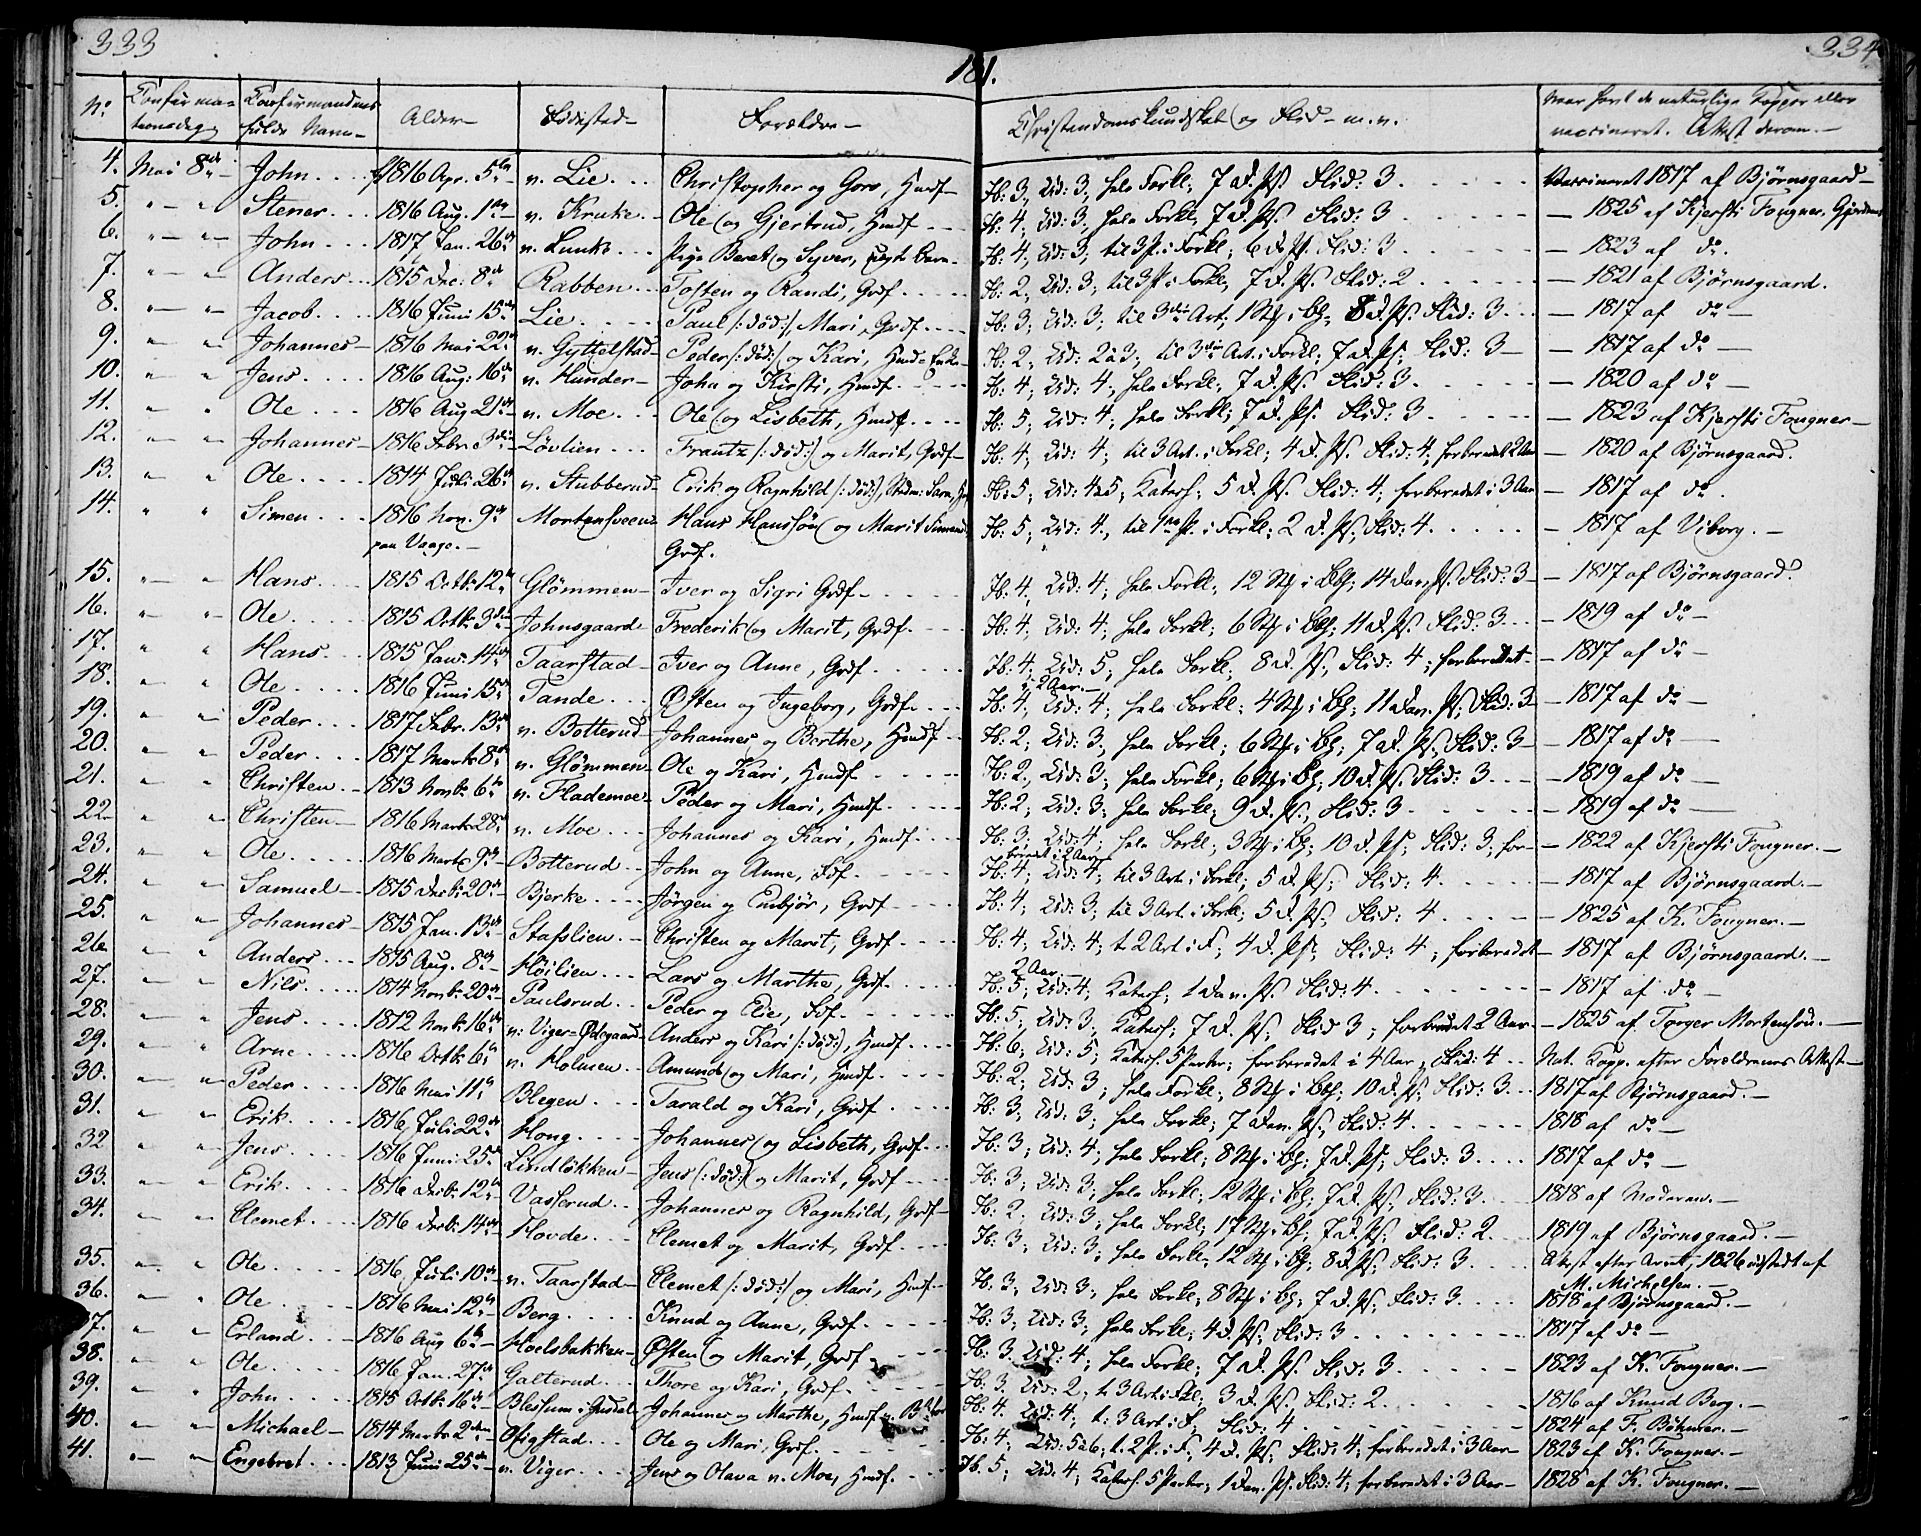 333
181.
334
No Confirmationsdag Confirmandens fulde Navn Alder Fødested Forældre Christendomskundskab og Flid m. v. Naar havt de naturlige Kopper eller vaccineret. Attest derom.
4. Mai 8de John 1816 Apr. 5te n. Lie Christopher og Goro, Hmdf. H: 3, Ud: 3, hele Forkl; 7 D. Ps. Flid: 3 Vaccineret 1817 af Bjørnsgaard
5. " " Stener 1816 Aug. 1ste n. Kruke Ole og Gjertrud, Hmdf H: 4, Ud: 3, hele Forkl; 7 D. Ps. Flid: 3 1825 af Kjersti Fougner,
6. " " John 1817 Jan. 26de n. Lunke Pige Beret og Syver, uægte Barn H: 4, Ud: 3, til 3 P. i Forkl; 6 D. Ps. Flid: 3 1823 af do
7. " " Anders 1815 Dec. 8de Rabben Tosten og Randi, Grdf. H: 2, Ud: 3, til 3 P. i Forkl; 7 D. Ps. Flid: 2 1821 af Bjørnsgaard.
8. " " Jacob 1816 Juni 15de Lie Paul /: død :/ Mari, Grdf. H: 3; Ud: 3; til 3die Art; 8 D. Ps. Flid: 3 1817 af do
9. " " Johannes 1816 Mai 22de n. Gyttelstad Peder /: død :/ og Kari, Hmds Enke H: 2, Ud: 2 à 3; til 3die Art. i Forkl; 7 D. Ps; Flid: 3 1817 af do
10. " " Jens 1816 Aug: 16de n. Hunder John og Kirsti, Hmdf. H: 4; Ud: 4, hele Forkl; 7 D. Ps. Flid: 3 1820 af do
11. " " Ole 1816 Aug 21de n. Moe Ole og Lisbeth, Hmdf. H: 5; Ud: 4; hele Forkl; 7 D. Ps. Flid: 3 1823 af Kjersti Fougner
12. " " Johannes 1816 Febr. 3die Løvlien Frantz /: død :/ og Marit, Grdf H: 4, Ud: 4; til 3 Art. i Forkl; 4 D. Ps. Flid: 4; forberedet 2 Aar 1820 af Bjørnsgaard.
13. " " Ole 1814 Juli 26de n. Stubberud Erik og Ragnhild /: død :/, H: 5; Ud: 4 à 5, Katech; 5 D. Ps. Flid: 4; forberedet i 3 Aar 1817 af do.
14. " " Simen 1816 Nov. 9de Mortensveen Hans Hanssøn og Marit H: 5; Ud: 4, til 1ste P. i Forkl; 2 D. Ps, Flid: 4 1817 af Viborg.
paa Vaage. Grdf.
15. " " Hans 1815 Octb: 12te Glömmen Iver og Sigri Grdf H: 4, Ud: 4; hele Forkl; 12 St. i Bh; 14 Dan. Ps. Flid: 3 1817 af Bjørnsgaard.
16. " " Ole 1815 Octb: 3die Johnsgaard Frederik og Marit, Grdf. H: 4, Ud: 4, hele Forkl; 6 St. i Bh; 11 D. Ps. Flid: 3 1819 af do
17. " " Hans 1815 Jan: 14de Taarstad Iver og Anne, Grdf. H: 4, Ud: 5, hele Forkl; 8 D. Ps; Flid: 4; forberedet 1817 af do
i 2 Aar.
18. " " Ole 1816 Juni 15de Tande Østen og Ingeborg, Grdf. H: 4, Ud: 4; hele Forkl; 4 St. i Bh; 11 Dan. Ps; Flid: 3 1817 af do
19. " " Peder 1817 Febr. 13de n. Botterud Johannes og Berthe, Hmdf H: 2, Ud: 3, hele Forkl; 6 St. i Bh; 7 D. Ps, Flid: 3 1817 af do
20. " " Peder 1817 Marts 8de n. Glömmen Ole og Kari, Hmdf. H: 2, Ud: 3; hele Forkl; 6 St. i Bh; 10 D. Ps. Flid: 3 1819 af do
21. " " Christen 1813 Novb: 6te n. Flademoe Peder og Mari, Hmdf. H: 2; Ud: 3; hele Forkl; 9 D. Ps; Flid: 3 1819 af do
22. " " Christen 1816 Marts 28de n. Moe Johannes og Kari, Hmdf. H: 3; Ud: 4, hele Forkl; 3 St. i Bh; 10 D. Ps; Flid: 3, for- 1822 af Kjersti Fougner.
beredt i 2 Aar
23. " " Ole 1816 Marts 9de Botterud John og Anne, H: 4, Ud: 4, til 3 Art. i Forkl; 5 D. Ps; Flid: 4 1817 af Bjørnsgaard.
24. " " Samuel 1815 Decb: 20de Bjerke Jørgen og Embjør, Grdf H: 4, Ud: 3; til 3 Art. i Forkl; 5 D. Ps, Flid: 4 1825 af K. Fougner.
25. " " Johannes 1815 Jan. 13de Stafslien Christen og Marit, Grdf. H: 4, Ud: 4; t. 2 Art. i F; 4 D. Ps; Flid: 4; forberedet 1817 af Bjørnsgaard.
2 Aar.
26. " " Anders 1815 Aug. 8de Høilien Lars og Marthe, Grdf. H: 5, Ud: 4; Katech; 1 Dan. Ps. Flid: 4 1817 af do
27. " " Nils 1814 Novb: 20de Paulsrud Peder og Elie, H: 5; Ud: 3, Katech; 7 D. Ps; Flid 3; forberedt 2 Aar. 1825 af Torger Mortensøn.
28. " " Jens 1812 Novb: 16de n: Viger-Ødegaard Anders og Kari /: død :/, Hmdf. H: 6, Ud: 5; Katech. 5 Parter; forberedet i 4 Aar; Flid: 4 Nat. Kopp. efter Forældrenes Attest
29. " " Arne 1816 Octb: 6te n. Holmen Amund og Mari, Hmdf. H: 2, Ud: 3; hele Forkl; 8 St. i Bh; 10 D. Ps; Flid: 3 1817 af Bjørnsgaard.
30. " " Peder 1816 Mai 11te Blegen Tarald og Kari, Grdf H: 3, Ud: 3, hele Forkl; 7 Dan. Ps, Flid: 4 1818 af do
31. " " Erik 1816 Juli 22de Hong Johannes og Lisbeth, Grdf. H: 3; Ud: 4, hele Forkl; 8 St. i Bh; 7 D. Ps; Flid: 3 1817 af do
32 " " Jens 1816 Juni 25de Lindløkken Jens /: død :/ og Marit, Grdf H: 3; Ud: 3, hele Forkl; 12 St. i Bh; 7 D. Ps; Flid: 3 1818 af Moderen.
33. " " Erik 1816 Decb: 12te Vasserud Johannes og Ragnhild, Grdf H: 2; Ud: 3, hele Forkl; 17 St. i Bh; 7 D. Ps; Flid: 2 1819 af Bjørnsgaard.
34. " " Clemet 1816 Decb: 14de Hovde Clemet og Marit, Grdf. H: 3, Ud: 3; hele Forkl; 12 St. i Bh; 8 D. Ps; Flid: 3 Attest efter 1826 udstedt af
M. Michelsen.
35. " " Ole 1816 Juli 10de n. Taarstad Clemet /: død :/ og Mari, Hmdf. H: 3, Ud: 3, hele Forkl; 8 St. i Bh; 7 D. Ps, Flid: 3 1818 af Bjørnsgaard.
36. " " Ole 1816 Mai 12te Berg Knud og Anne, Grdf. H: 3; Ud: 3, hele Forkl; 4 D. Ps; Flid: 3 1817 af do
37. " " Erland 1816 Aug 6te Hoelsbakken Østen og Marit, Grdf H: 3 Ud: 4; hele Forkl; 7 D. Ps. Flid: 3 1823 af K. Fougner.
38. " " Ole 1816 Jan. 27de Galterud Thore og Kari, Grdf. H: 3. Ud: 2, t. 3 Art. i Fkl; 3 D. Ps, Flid: 2 1816 af Knud Berg.
39. " " John 1815 Octb: 16de Blessum i Gusdal Johannes og Marthe, Hmdf. H: 4. Ud: 4; t: 3 Art. i F. Flid: 4 1824 af F. Böhmer.
40. " " Michael 1814 Marts 2den Øfigstad Ole og Mari, Grdf. H: 4, Ud: 5 à 6, t. 2 P. i F; 4 D. Ps; Flid: 4; forberedet i 3 Aar 1823 af K. Fougner.
41. " " Engebret 1813 Juni 25de n. Viger Jens og Olava n. Moe, Hmdf. H: 5, Ud: 4, Katech. 5 Parter; 1 Dan. Ps. Flid: 4, forberedet i 3 Aar 1828 af K. Fougner.